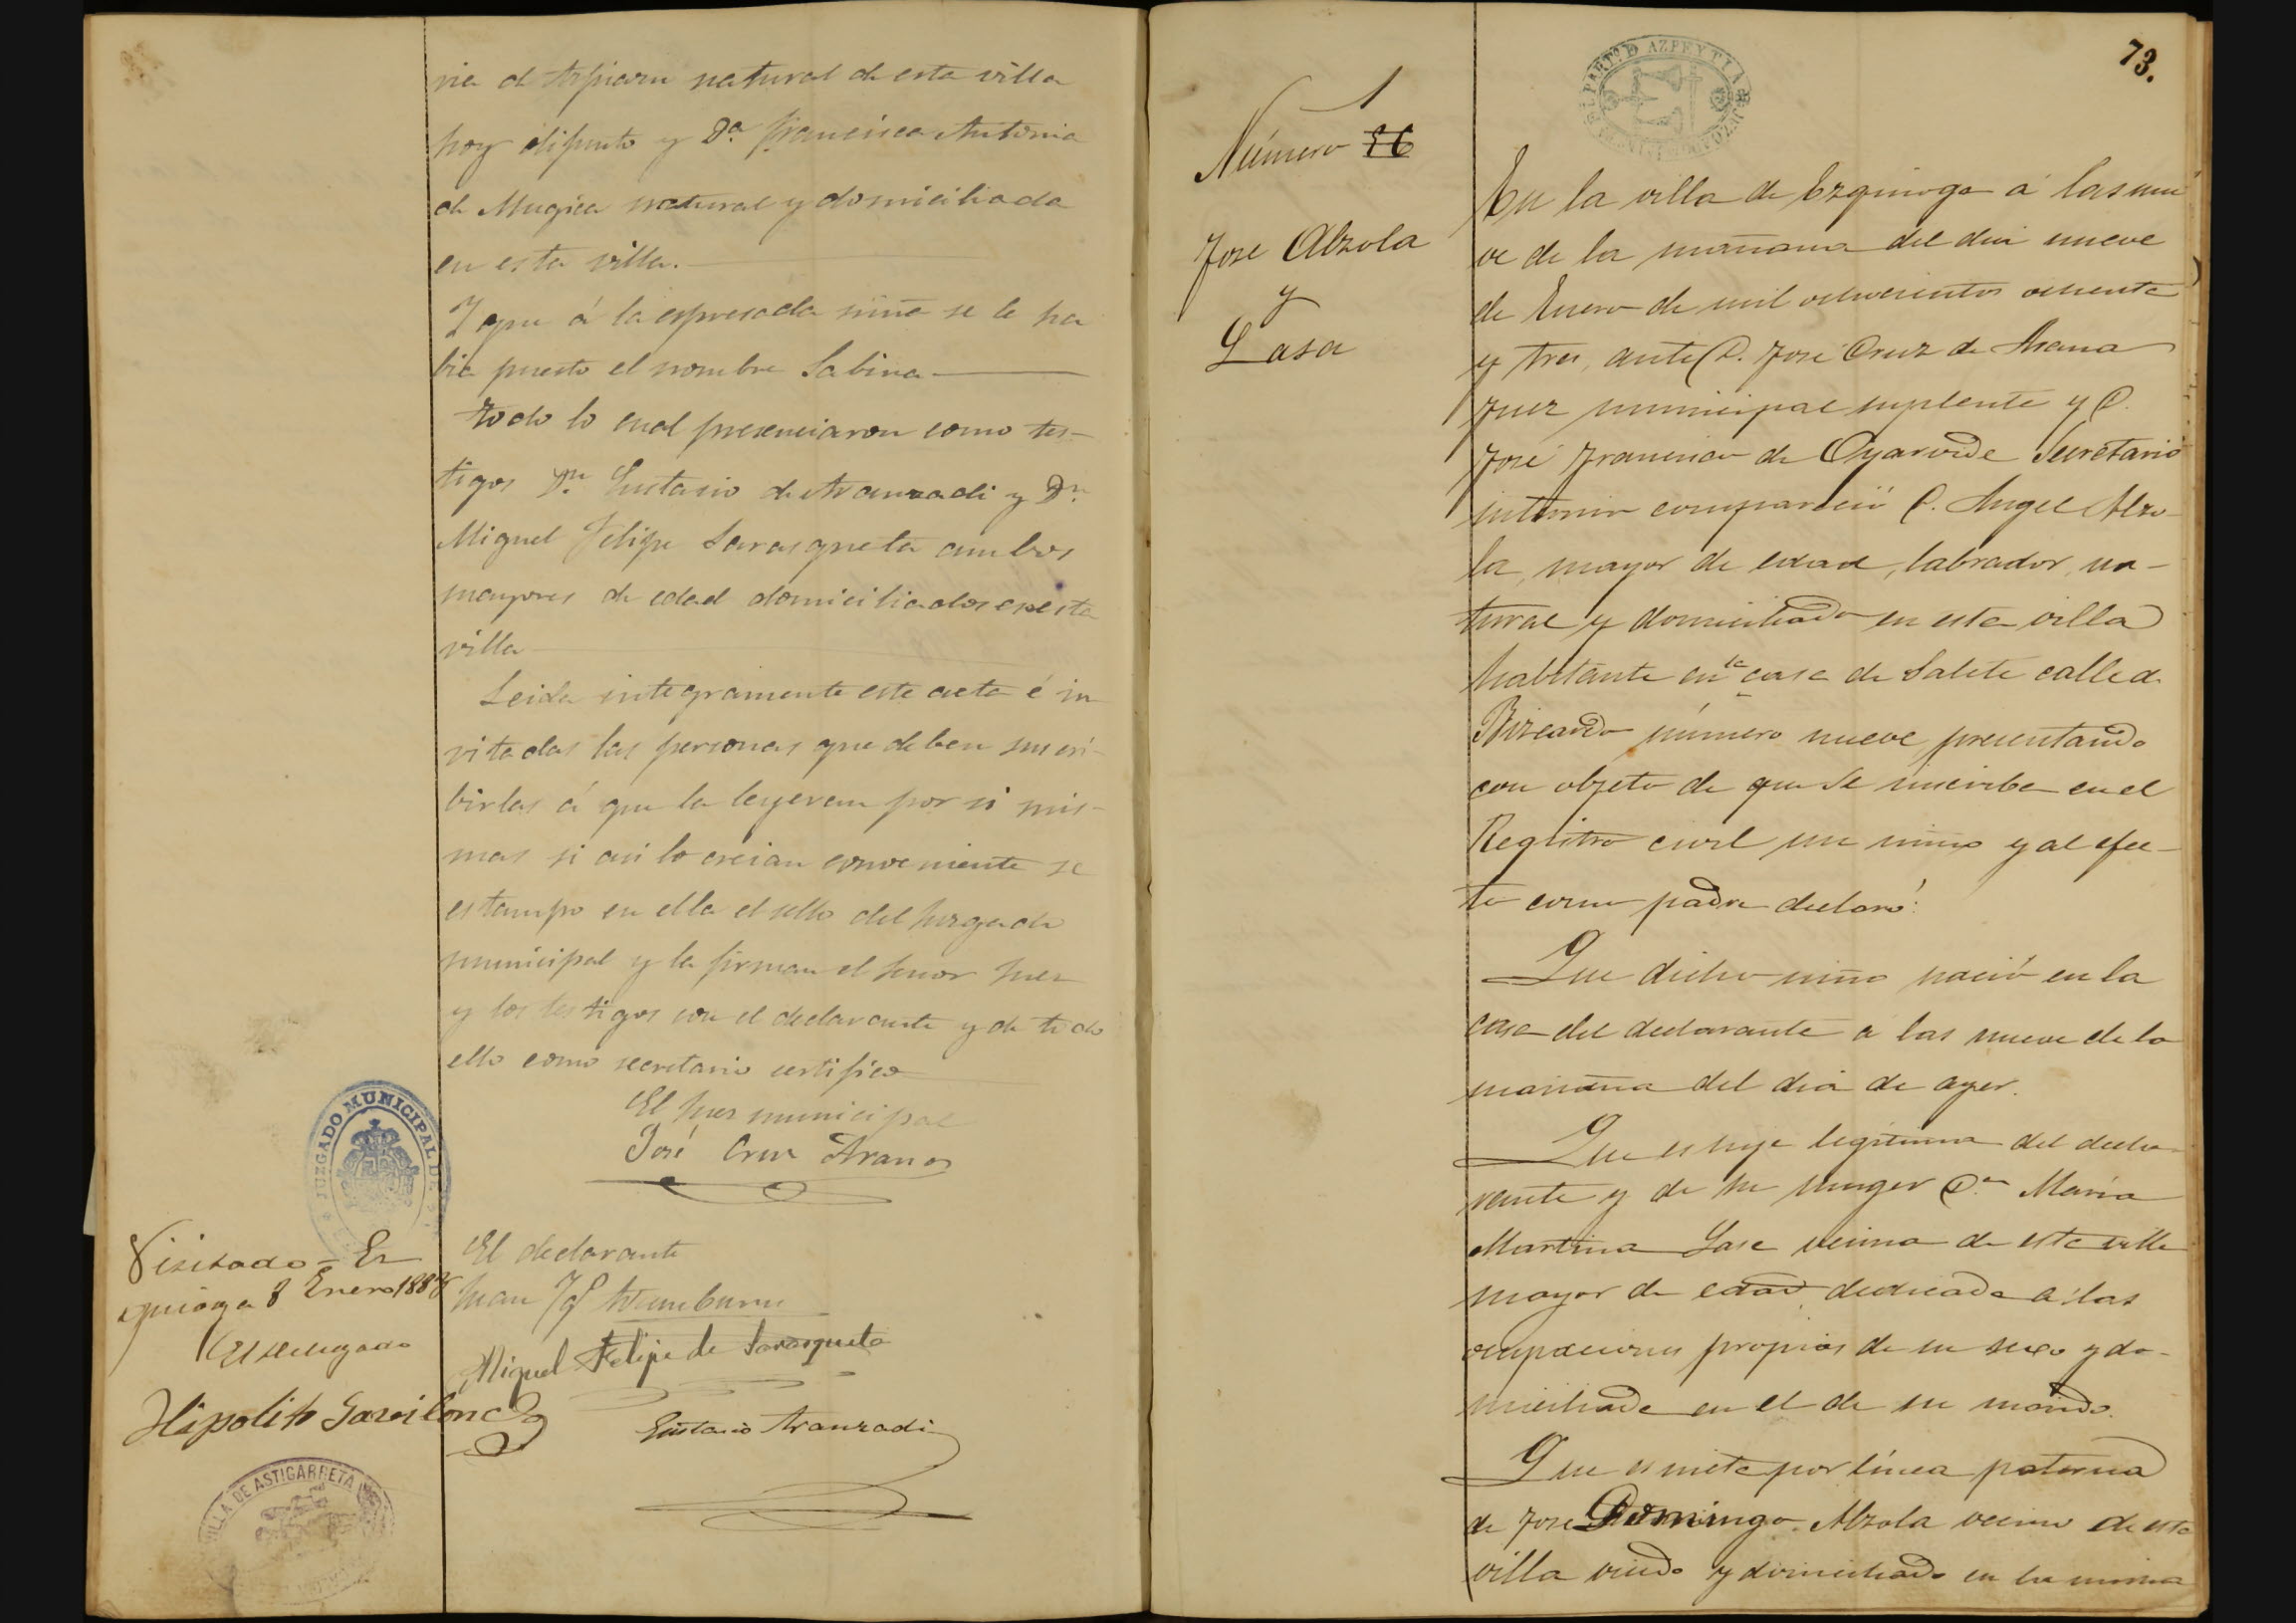 ria de Aspiazu natural de esta villa
hoy difunto y Dª Francisca Antonia
de Mugica natural y domiciliada
en esta villa.
Y que á la espresada niña se le ha
bia puesto el nombre Sabina
Todo lo cual presenciaron como tes-
tigos Dn Eustasio de Aranzadi y Dn
Miguel Felipe Sarasqueta ambos
mayores de edad domiciliados en esta
villa
Leida integramente este acta é in
vitadas las personas que deben suscri-
birlas á que la leyeran por si mis-
mas si asi lo creian conveniente se
estampo en ella el sello del Juzgado
municipal y la firman el Señor Juez
y los testigos con el declarante y de todo
ello como secretario certifico
El Juez municipal
José Cruz Arana
JUZGADO MUNICIPAL DE
El declarante
Juan
Miguel Felipe de Sarasqueta
Eustasio Aranzadi
Visitado = Ez
quioga 8 Enero 188
El Delegado
Hipolito
VILLA DE ASTIGARRETA
73.
PARTº D AZPEYTIA
1
Número 26
Jose Alzola
y
Lasa
En la villa de Ezquioga á las nue
ve de la mañana del dia nueve
de Enero de mil ochocientos ochenta
y tres, ante D. José Cruz de Arana
Juez municipal suplente y D.
José Francisco de Oyarvide Secretario
interino compareció D. Angel Alzo-
la, mayor de edad, labrador, na-
tural y domiciliado en esta villa
habitante en la casa de Salete calle d
número nueve presentando
con objeto de que se inscriba en el
Registro civil un niño y al efec-
to como padre declaró:
Que dicho niño nació en la
casa del declarante a las nueve de la
mañana del dia de ayer.
Que es hijo legitimo del decla-
rante y de su muger Dª Maria
Martina Lasa vecina de esta villa
mayor de edad dedicada a las
ocupaciones propias de su sexo y do-
miciliada en el de su marido.
Que es nieto por línea paterna
de Jose Domingo Alzola vecino de esta
villa viudo y domiciliado en la misma